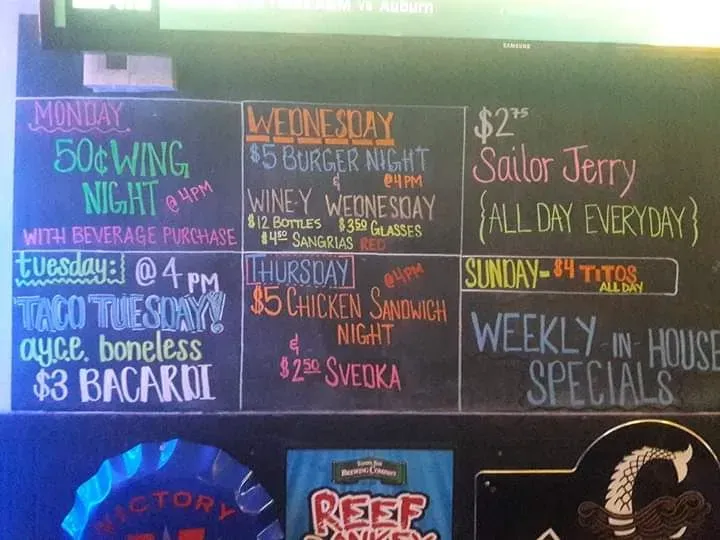 A&M vs Auburn
SAMSUNG
MONDAY
50¢ WING
NIGHT @ 4PM
WITH BEVERAGE PURCHASE
WEDNESDAY
$5 BURGER NIGHT
& @4PM
WINE-Y WEDNESDAY
$12 BOTTLES $350 GLASSES
$450 SANGRIAS RED
$275
Sailor Jerry
{ALL DAY EVERYDAY}
tuesday: @ 4 PM
TACO TUESDAY!
ayce. boneless
$3 BACARDI
THURSDAY @4PM
$5 CHICKEN SANDWICH
NIGHT
&
$250 SVEDKA
SUNDAY- $4 TITOS
ALL DAY
WEEKLY -IN- HOUSE
SPECIALS
VICTORY
TAMPA BAY
BREWING COMPANY
REEF